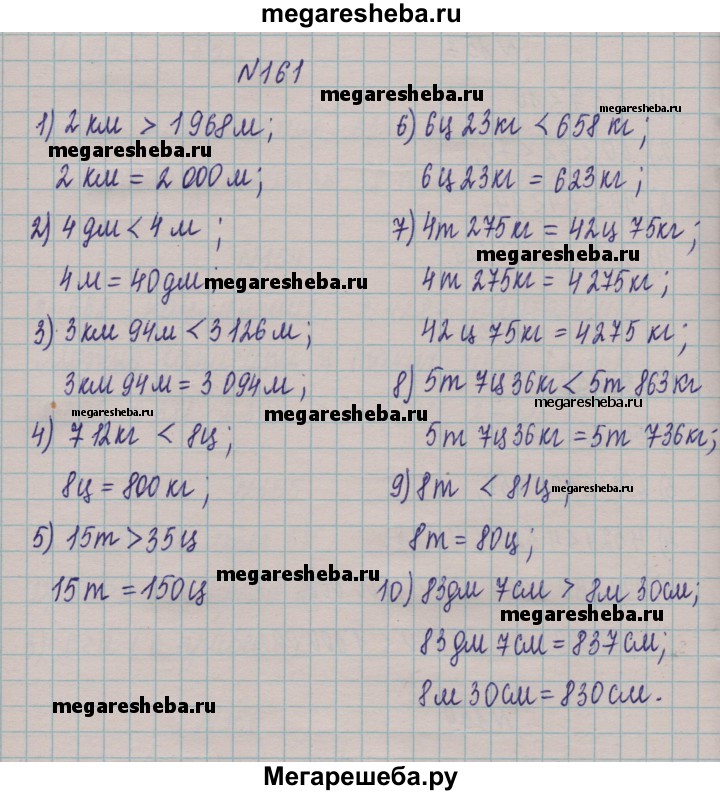 megaresheba.ru
N161
megaresheba.ru
1) 2 км > 1 968 м;
megaresheba.ru
2 км = 2 000 м;
2) 4 дм < 4 м ;
4 м = 40 дм;
megaresheba.ru
3) 3 км 94 м < 3 126 м;
3 км 94 м = 3 094 м;
megaresheba.ru
megaresheba.ru
4) 712 кг < 8 ц;
8 ц = 800 кг;
5) 15 т > 35 ц
megaresheba.ru
15 т = 150 ц
megaresheba.ru
megaresheba.ru
6) 6 ц 23 кг < 658 кг;
6 ц 23 кг = 623 кг;
7) 4 т 275 кг = 42 ц 75 кг;
megaresheba.ru
4 т 275 кг = 4 275 кг;
42 ц 75 кг = 4275 кг;
8) 5 т 7 ц 36 кг < 5 т 863 кг
megaresheba.ru
5 т 7 ц 36 кг = 5 т 736 кг;
9) 8 т < 81 ц;
megaresheba.ru
8 т = 80 ц;
10) 83 дм 7 см > 8 м 30 см;
megaresheba.ru
83 дм 7 см = 837 см;
8 м 30 см = 830 см.
Мегарешеба.ру